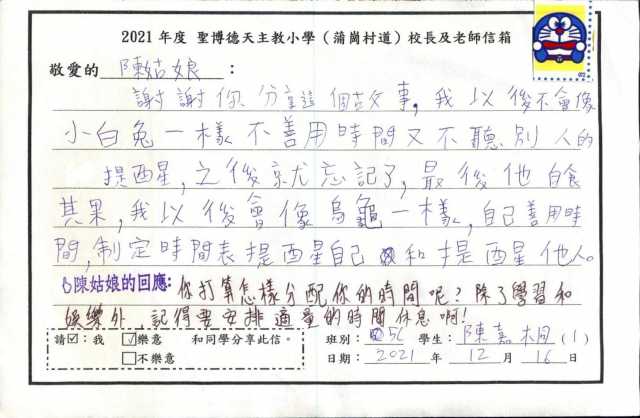 2021 年度 聖博德天主教小學（蒲崗村道）校長及老師信箱
敬愛的 陳姑娘 ：
謝謝你分享這個故事，我以後不會像
小白兔一樣不善用時間又不聽別人的
提醒，之後就忘記了，最後他自食
其果，我以後會像烏龜一樣，自己善用時
間，制定時間表提醒自己和提醒他人。
陳姑娘的回應：你打算怎樣分配你的時間呢？除了學習和
娛樂外，記得要安排適量的時間休息啊！
請☑：我 ☑樂意 和同學分享此信。 班別：5C 學生：陳嘉桐(1)
□不樂意 日期：2021 年 12 月 16 日